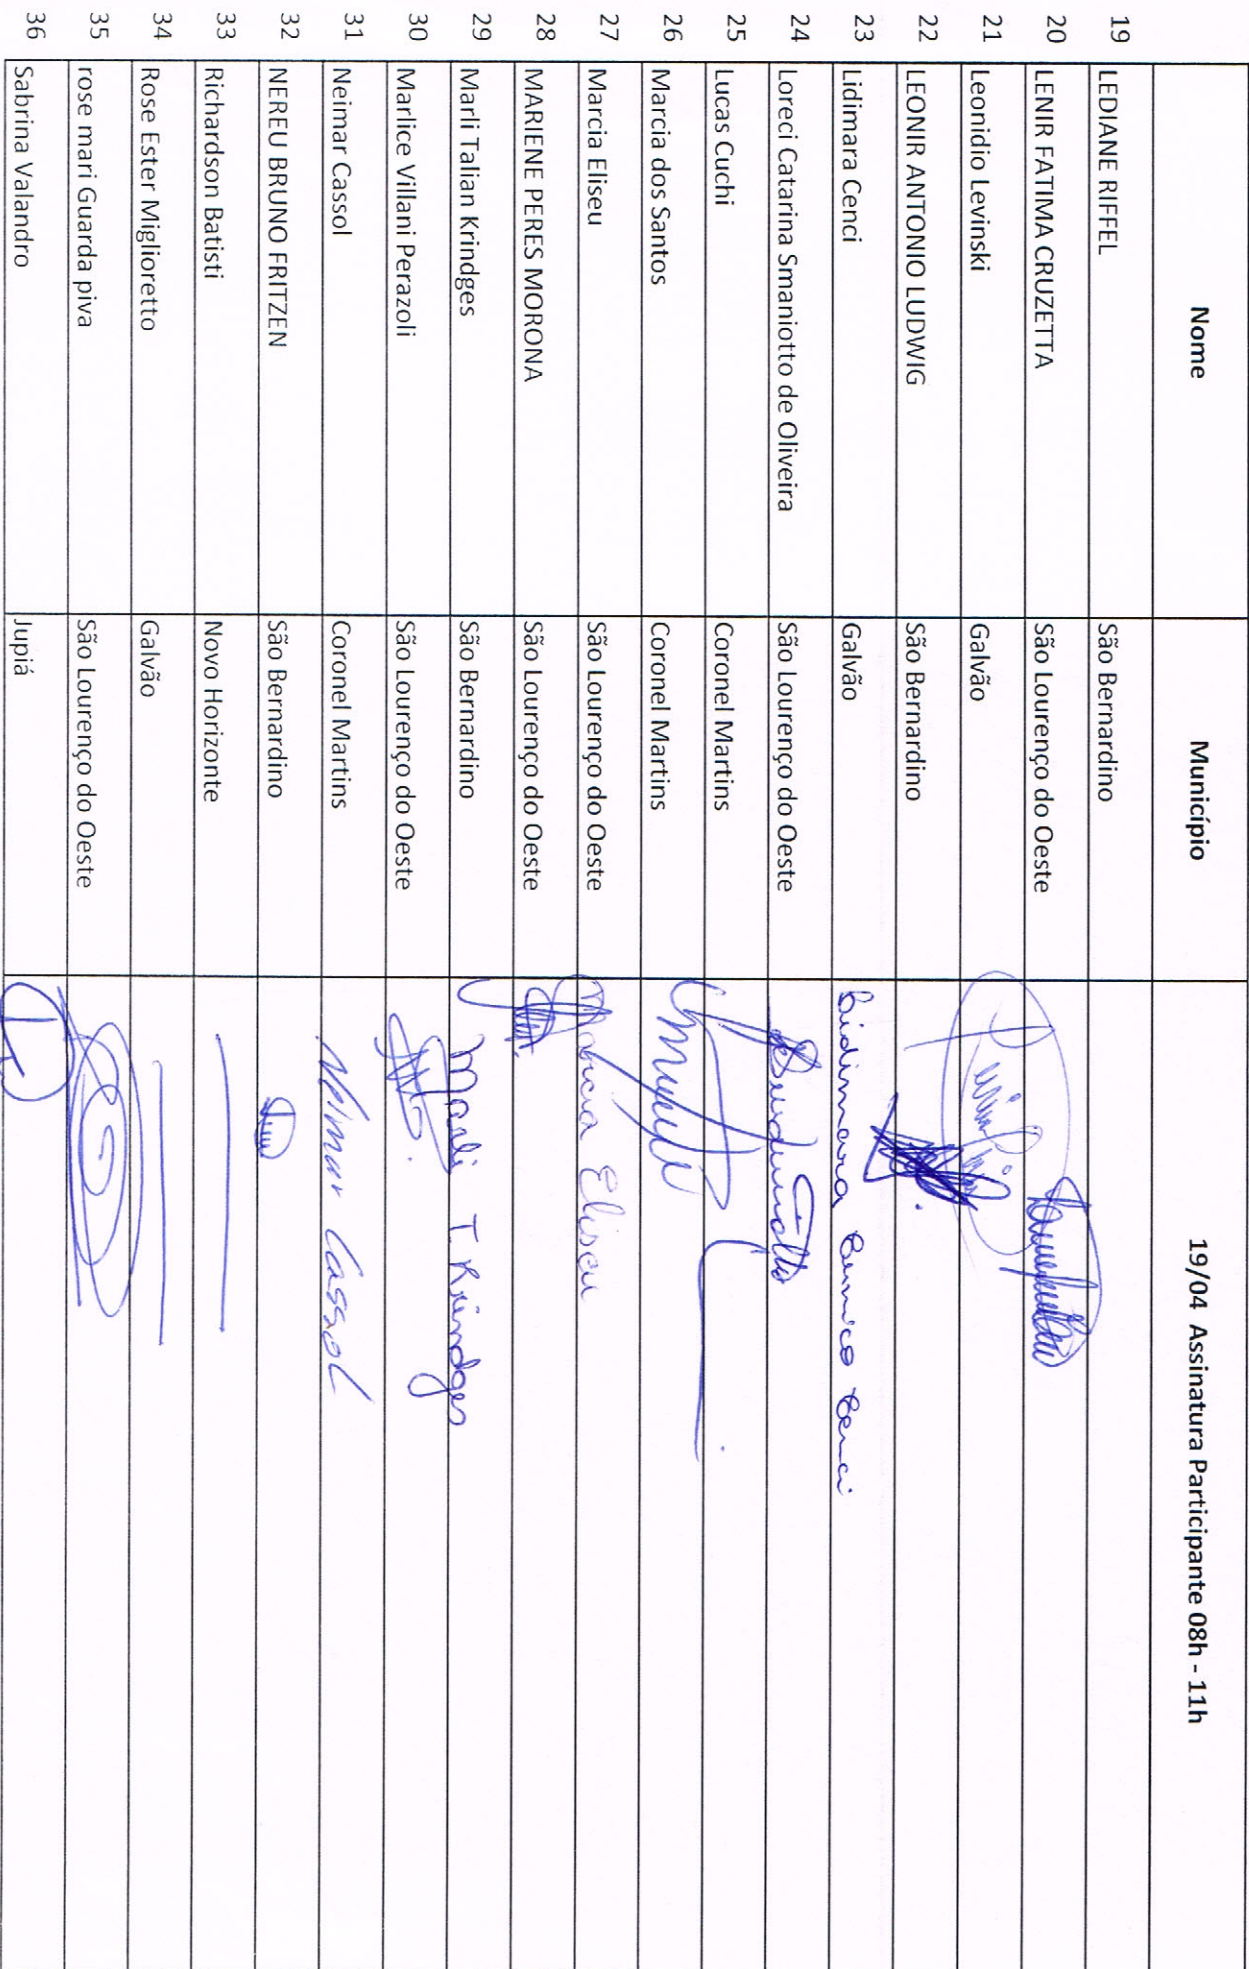 Nome Município 19/04 Assinatura Participante 08h - 11h
19 LEDIANE RIFFEL São Bernardino
20 LENIR FATIMA CRUZETTA São Lourenço do Oeste
21 Leonidio Levinski Galvão
22 LEONIR ANTONIO LUDWIG São Bernardino
23 Lidimara Cenci Galvão Lidimara Cenci
24 Loreci Catarina Smaniotto de Oliveira São Lourenço do Oeste
25 Lucas Cuchi Coronel Martins
26 Marcia dos Santos Coronel Martins
27 Marcia Eliseu São Lourenço do Oeste Marcia Eliseu
28 MARIENE PERES MORONA São Lourenço do Oeste
29 Marli Talian Krindges São Bernardino Marli T. Krindges
30 Marlice Villani Perazoli São Lourenço do Oeste
31 Neimar Cassol Coronel Martins Neimar Cassol
32 NEREU BRUNO FRITZEN São Bernardino
33 Richardson Batisti Novo Horizonte
34 Rose Ester Miglioretto Galvão
35 rose mari Guarda piva São Lourenço do Oeste
36 Sabrina Valandro Jupiá